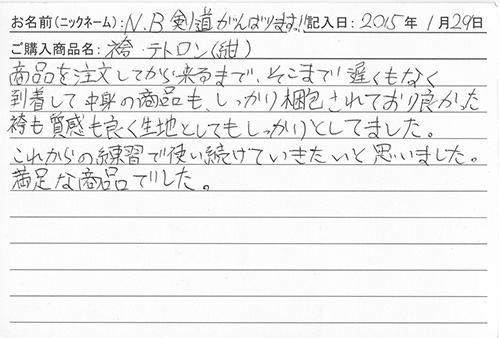 お名前(ニックネーム): N.B 剣道がんばります!! 記入日: 2015年 1月29日
ご購入商品名: 袴 テトロン(紺)
商品を注文してから来るまで、そこまで遅くもなく
到着して中身の商品も、しっかり梱包されており良かった
袴も質感も良く生地としてもしっかりとしてました。
これからの練習で使い続けていきたいと思いました。
満足な商品でした。